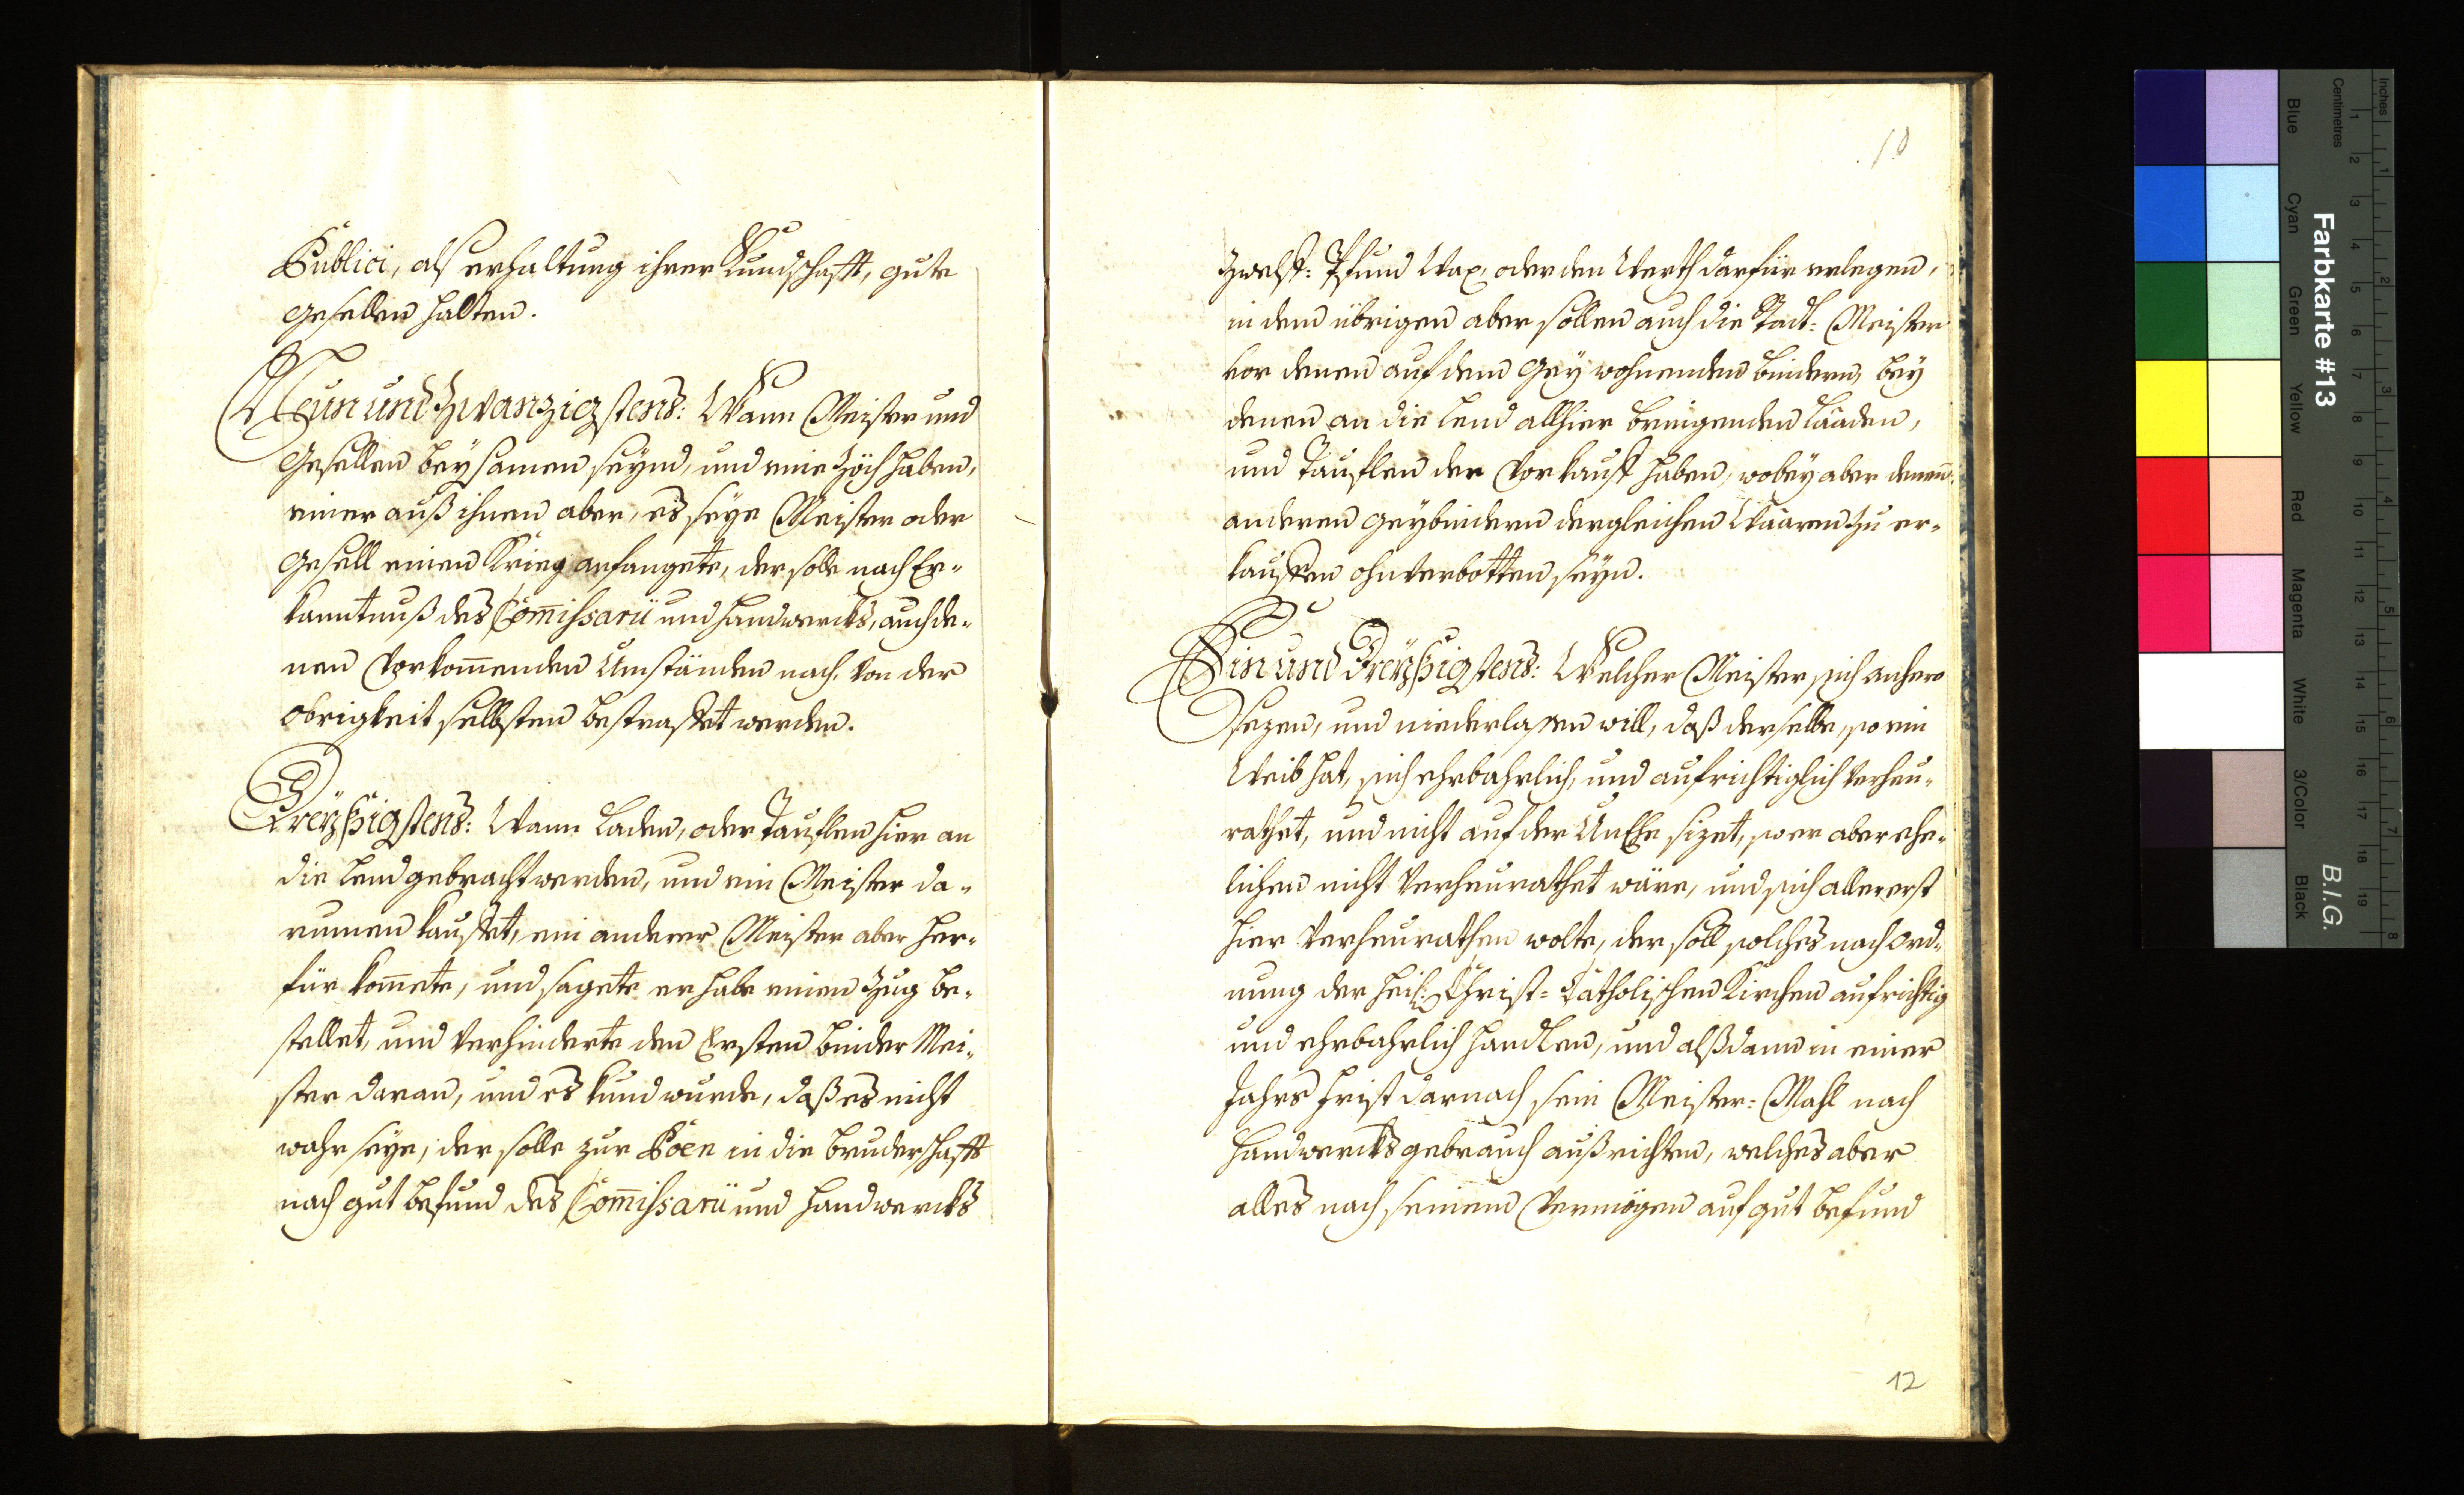 Publici, als erhaltung ihrer Kundschafft, gute
gesellen halten.
Neun und Zwanzigstens: Wann Meister und
Gesellen beysamen seynd, und eine Zöch haben,
einer auß ihnen aber, es seye Meister oder
gesell einen Krieg anfangete, der solle nach Er-
kanntnuß des Com̄issarii und Handwercks, auch de-
nen vorkom̄enden Umständen nach, von der
obrigkeit selbsten bestraffet werden.
Dreyßigstens: Wann Laden, oder Tauflen hier an
die Lend gebracht werden, und ein Meister da-
rumen kauffet, ein anderer Meister aber her-
für kom̄ete, und sagete er habe einen Zug be-
stellet, und verhinderte den Ersten binder Mei-
ster daran, und es kund wurde, daß es nicht
wahr seye, der solle zur Poen in die bruderschafft
nach gut befund des Com̄issarii und Handwercks
10
Zwelff: Pfund Wax, oder den Werth darfür erlegen,
in dem übrigen aber sollen auch die Stadt: Meister
vor denen auf dem Gey wohnenden bindern, bey
denen an die Lend allhier bringenden Läaden,
und Tauflen der Vorkauff haben, wobey aber denen̄
anderen geybindern dergleichen Waaren zu er-
kauffen ohnverbotten seyn.
Ein und Dreyßigstens: Welcher Meister sich anhero
sezen, und niederlassen will, daß derselbe, so ein
Weib hat, sich ehrbahrlich, und aufrichtiglich verheu-
rathet, und nicht auf der UnEhe sizet, so er aber ehe-
lichen nicht verheurathet wäre, und sich allererst
hier verheurathen wolte, der soll solches nach Ord-
nung der Heil: Christ= Catholischen Kirchen aufrichtig
und ehrbahrlich handlen, und alßdann in einer
Jahrs frist darnach sein Meister= Mahl nach
Handwercks gebrauch außrichten, welches aber
alles nach seinem Vermögen auf gut befund
12
Farbkarte #13
B.I.G.
Inches
Centimetres
Blue
Cyan
Green
Yellow
Red
Magenta
White
3/Color
Black
1 2 3 4 5 6 7 8 9 10 11 12 13 14 15 16 17 18 19
1 2 3 4 5 6 7 8